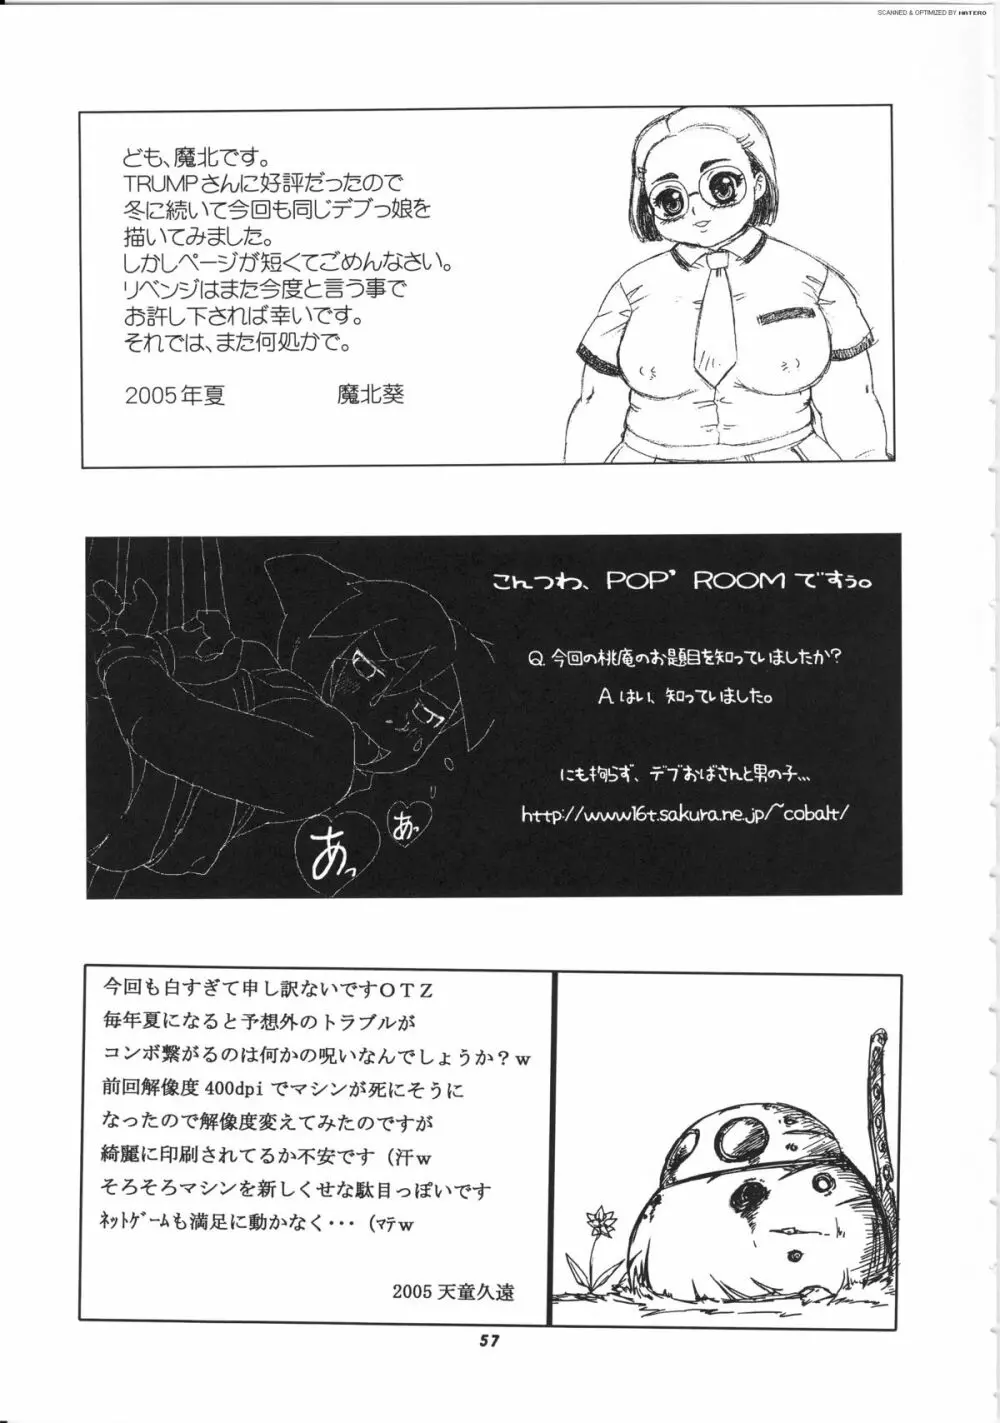 SCANNED & OPTIMIZED BY HATERO
ども、魔北です。
TRUMPさんに好評だったので
冬に続いて今回も同じデブっ娘を
描いてみました。
しかしページが短くてごめんなさい。
リベンジはまた今度と言う事で
お許し下されば幸いです。
それでは、また何処かで。
2005年夏 魔北葵
こんつわ、POP’ ROOMですぅ。
Q. 今回の桃庵のお題目を知っていましたか?
A. はい、知っていました。
にも拘らず、デブおばさんと男の子...
http://www16t.sakura.ne.jp/~cobalt/
あっ
あっ
今回も白すぎて申し訳ないですOTZ
毎年夏になると予想外のトラブルが
コンボ繋がるのは何かの呪いなんでしょうか?w
前回解像度400dpiでマシンが死にそうに
なったので解像度変えてみたのですが
綺麗に印刷されてるか不安です(汗w
そろそろマシンを新しくせな駄目っぽいです
ﾈｯﾄｹﾞｰﾑも満足に動かなく・・・(ﾏﾃw
2005天童久遠
57